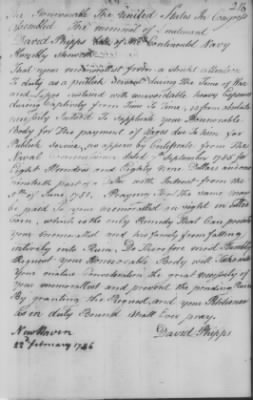 The Honourable The United States In Congress
Assembled The memorial of Lieutenant
David Phipps late of the Continental Navy
Humbly Sheweth
That your memorialist from a strict attention
to duty as a Publick Servant during the time of War
and Losses sustained with unavoidable heavy Expence
during Captivity from Time to Time, is from absolute
necessity Initiated To Supplicate your Honourable
Body for The payment of Wages due to him for
Publick Service, as appears by Certificate from The
Naval Commissioner dated September 1785 for
Eight Hundred and Eighty nine Dollars and
ninetieth part of a Dollar with Interest from the
of June 1781. Praying That the same may
be paid to your memorialist on sight in
Coin, which is the only Remedy That Can prevent
your memorialist and his family from falling
entirely into Ruin. Do Therefore most Humbly
Request your Honourable Body will Take into
your Consideration the great necessity of
your memorialist and prevent the pending Ruin
By granting his Request, and your Petitioner
as in duty Bound Shall Ever pray.
New Haven
22d February 1786
David Phipps